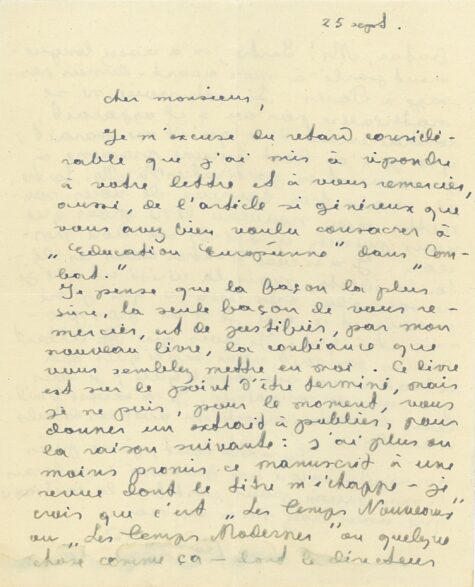 25 sept.
Cher monsieur,
Je m'excuse du retard considé-
rable que j'ai mis à répondre
à votre lettre et à vous remercier,
aussi, de l'article si généreux que
vous avez bien voulu consacrer à
„Education Européenne" dans „Com-
bat."
Je pense que la façon la plus
sûre, la seule façon de vous re-
mercier, est de justifier, par mon
nouveau livre, la confiance que
vous semblez mettre en moi.. Ce livre
est sur le point d'être terminé, mais
je ne puis, pour le moment, vous
donner un extrait à publier, pour
la raison suivante: j'ai plus ou
moins promis ce manuscrit à une
revue dont le titre m'échappe - je
crois que c'est „Les Temps Nouveaux"
ou „Les Temps Modernes" ou quelque
chose comme ça - dont le directeur